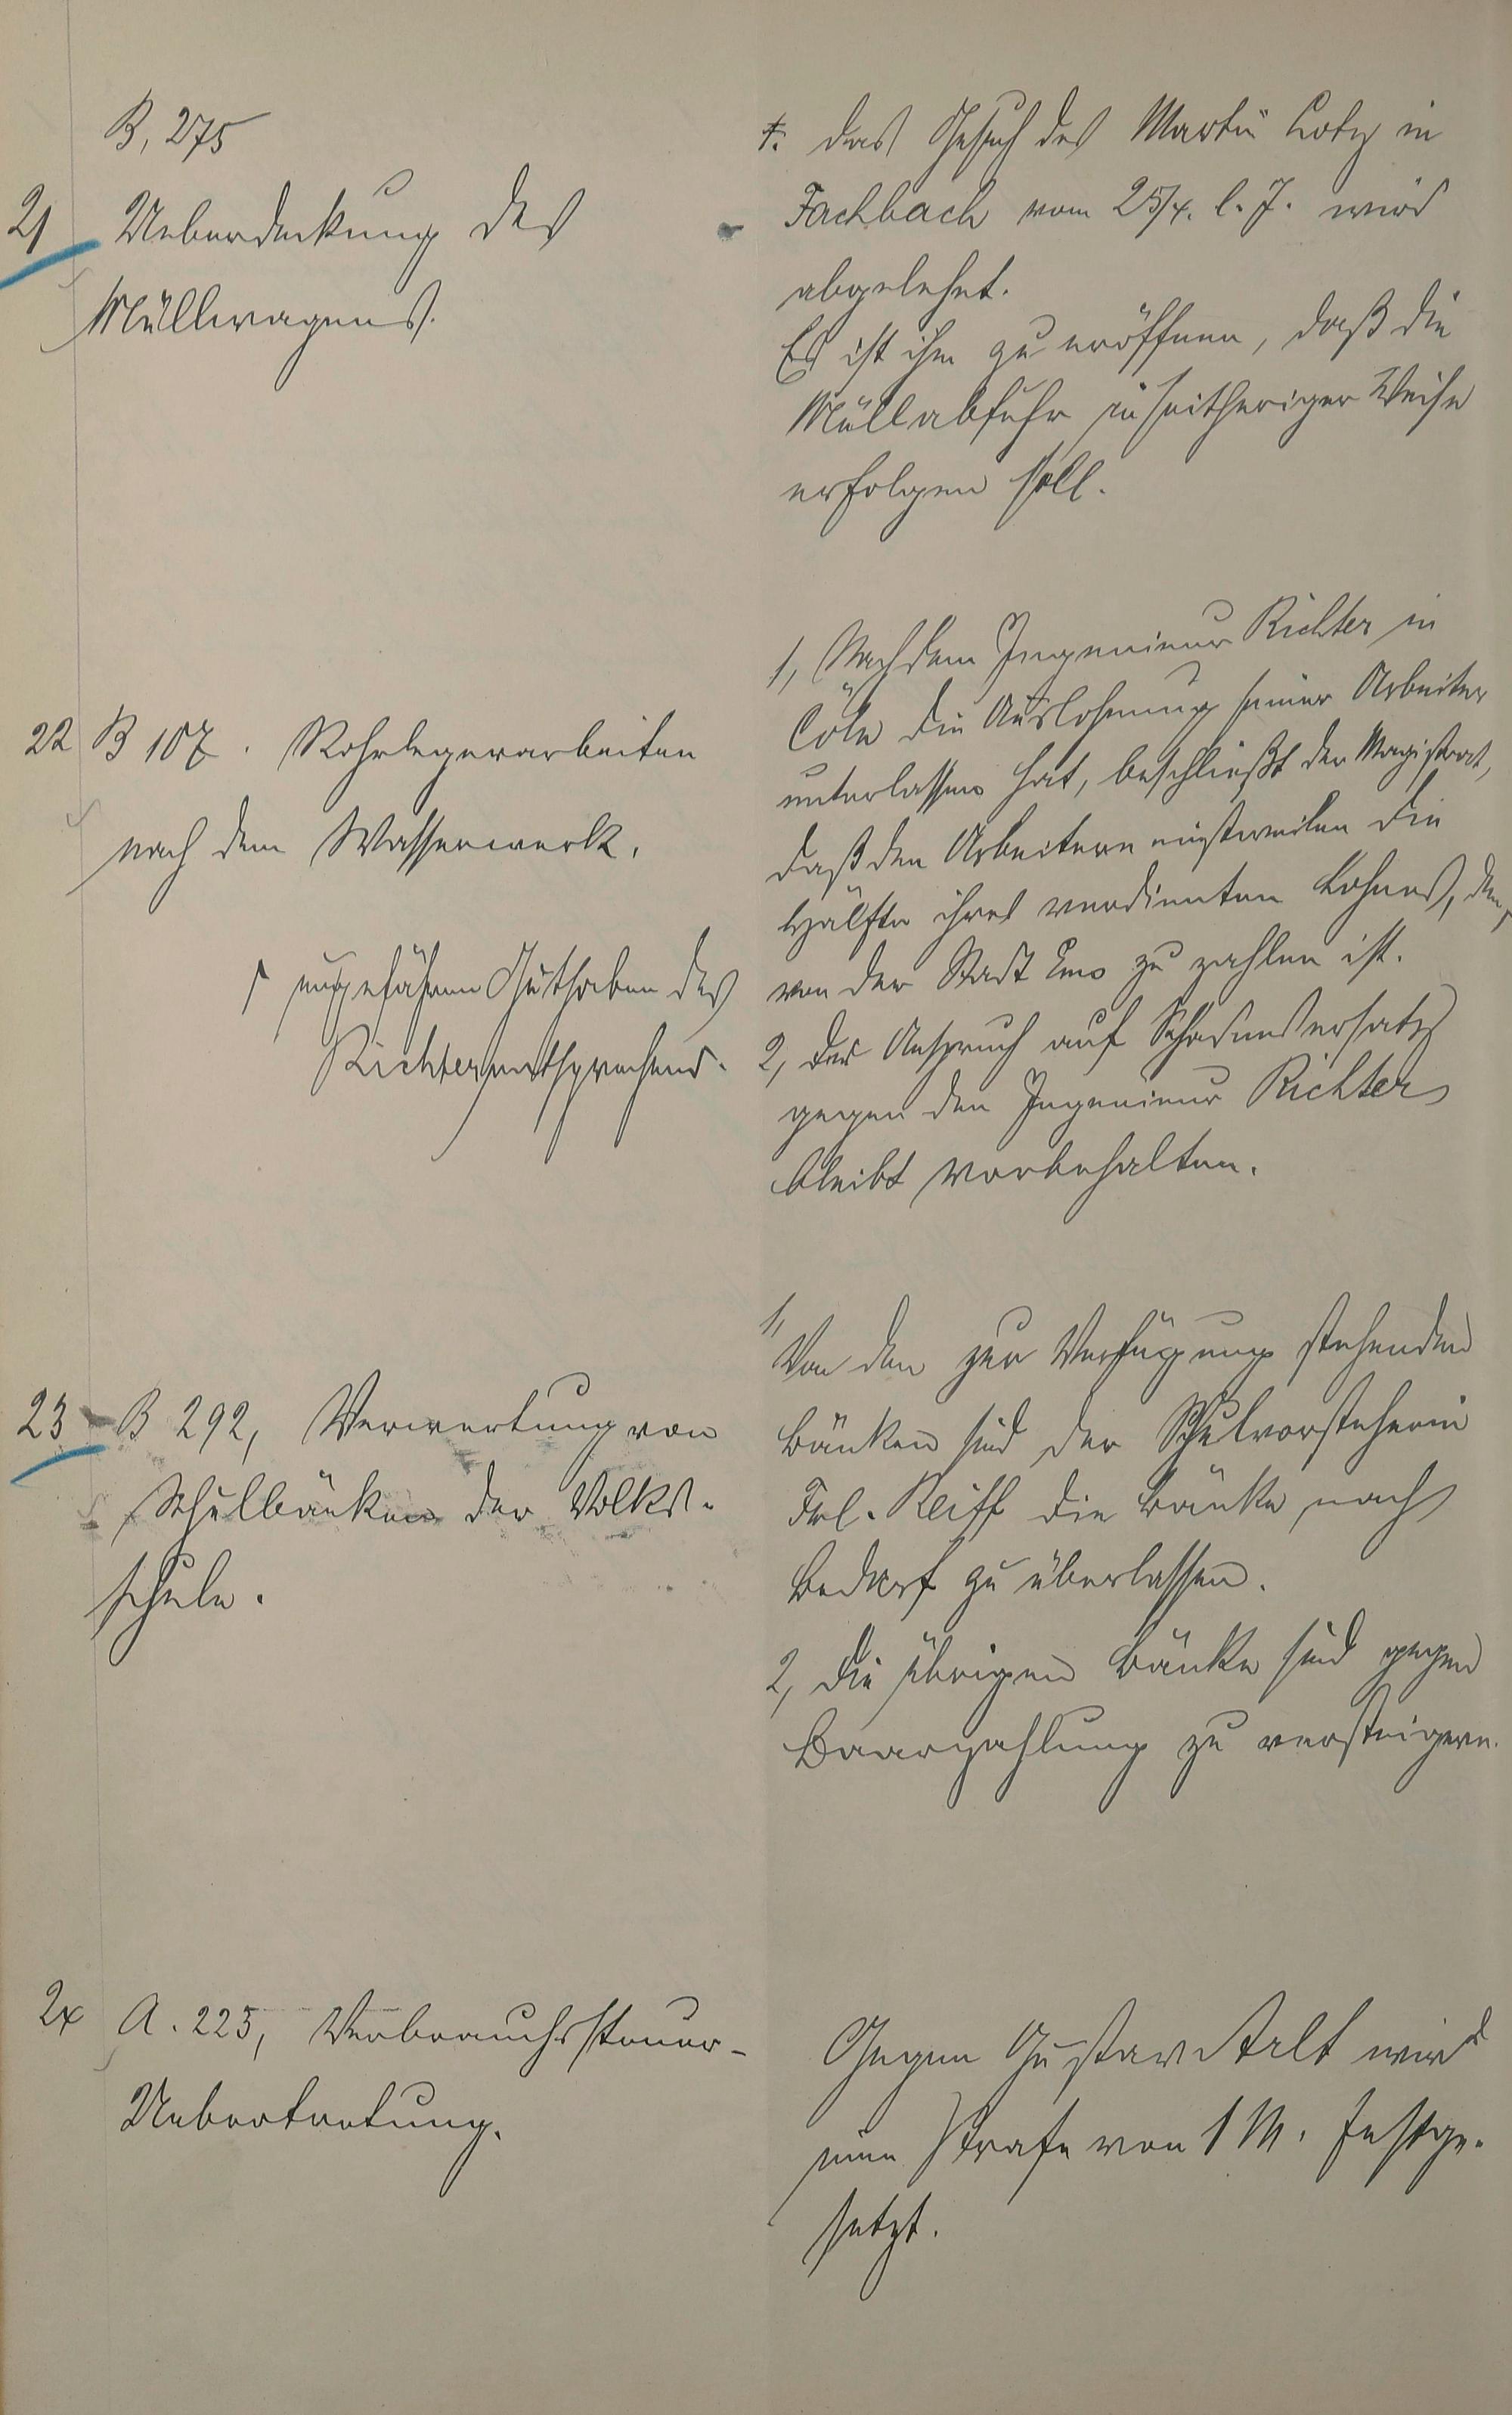 B, 275
21 Ueberdeckung des
Müllwagens.
1. das Gesuch des Martin Lotz in
Fachbach vom 25/4. l. J. wird
abgelehnt.
Es ist ihm zu eröffnen, daß die
Müllabfuhr in seitheriger Weise
erfolgen soll.
22 B 107. Rohrlegerarbeiten
nach dem Wasserwerk.
1, Nachdem Ingenieur Richter in
Cöln die Auslohnung seiner Arbeiter
unterlassen hat, beschließt der Magistrat,
daß den Arbeitern einstweilen die
Hälfte ihres verdienten Lohnes, dem
von der Stadt Ems zu zahlen ist.
2, der Anspruch auf Schadensersatz
gegen den Ingenieur Richter
bleibt vorbehalten.
ungefähren Guthaben des
Richter entsprechend.
23 B 292, Verwertung von
Schulbänken der Volks-
schule.
1, Von den zur Verfügung stehenden
Bänken sind der Schulvorsteherin
Frl. Reiff die Bänke nach
Bedarf zu überlassen.
2, die übrigen Bänke sind gegen
Baarzahlung zu versteigern.
24 A. 225, Verbrauchssteuer-
Uebertretung.
Gegen Gustav Alt wird
eine Strafe von 1 M. festge-
setzt.